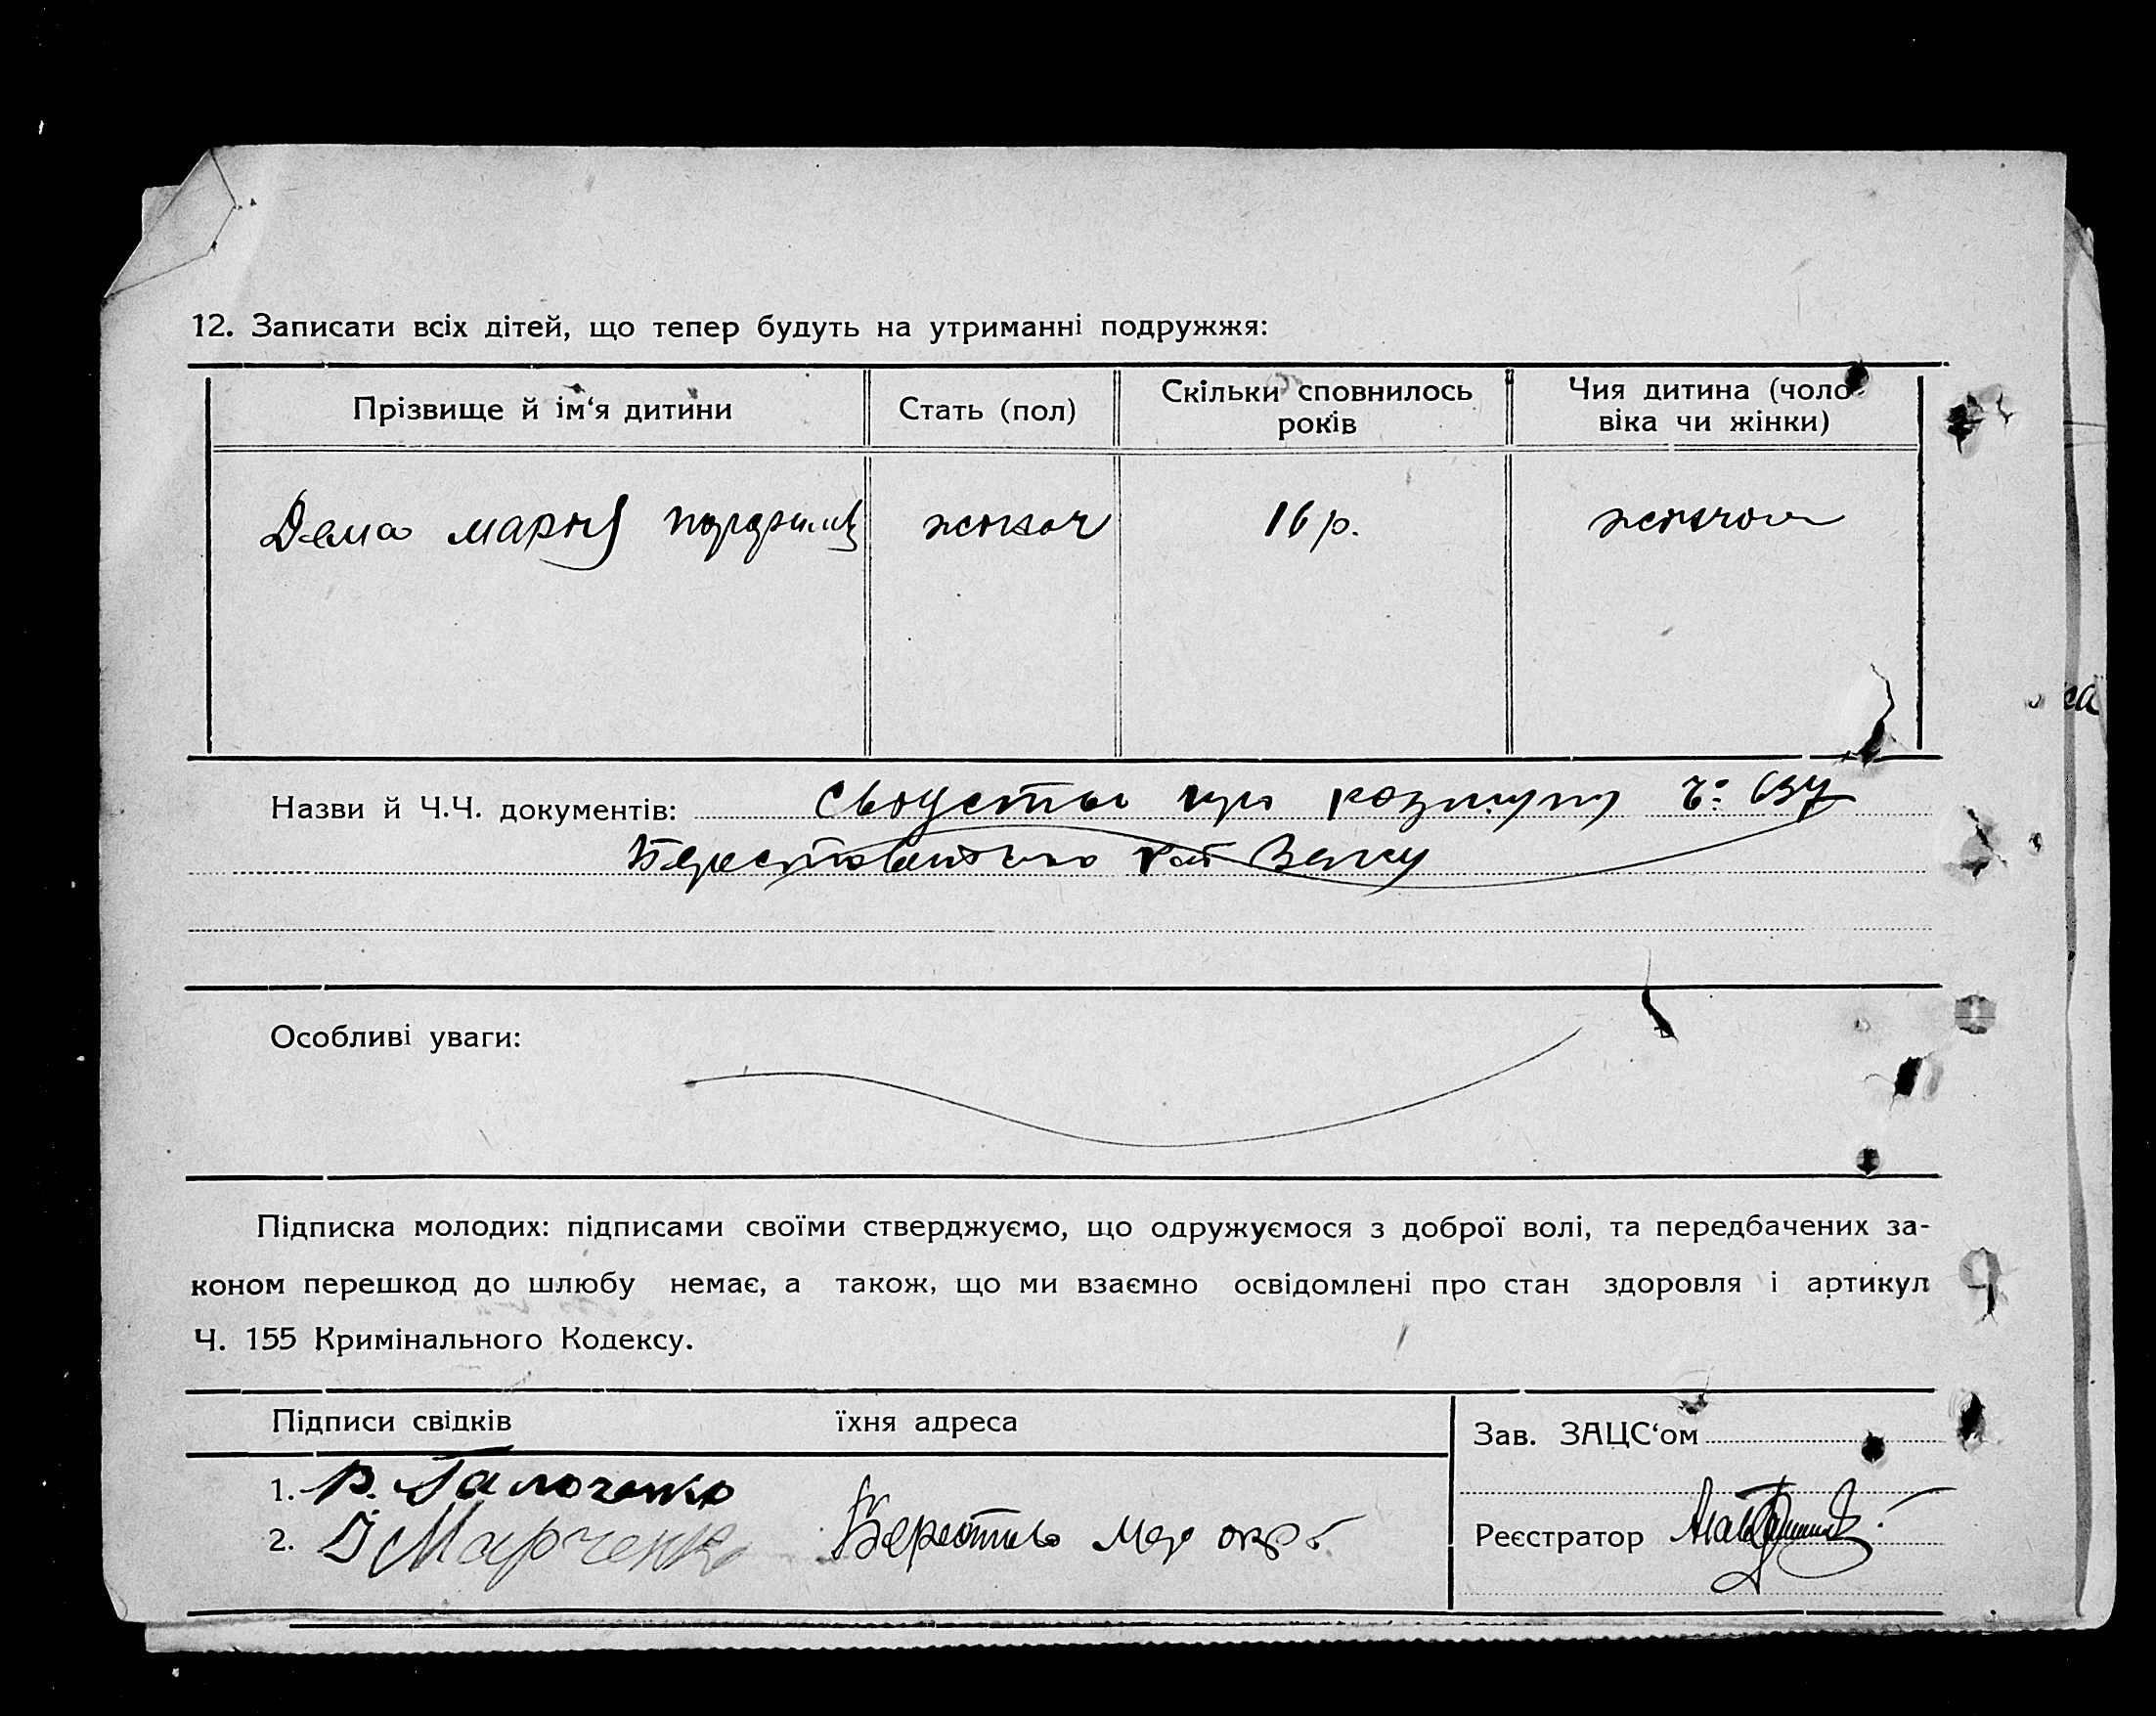 12. Записати всіх дітей, що тепер будуть на утриманні подружжя:
Прізвище й ім‘я дитини
Стать (пол)
Скільки сповнилось років
Чия дитина (чоло-
віка чи жінки)
Дема Марія
жіноч
16 р.
жіноча
Назви й Ч.Ч. документів: про
Особливі уваги:
Підписка молодих: підписами своїми стверджуємо, що одружуємося з доброї волі, та передбачених за-
коном перешкод до шлюбу немає, а також, що ми взаємно освідомлені про стан здоровля і артикул
Ч. 155 Кримінального Кодексу.
Підписи свідків їхня адреса
Зав. ЗАЦС‘ом
1.
2. Марченко
Реєстратор